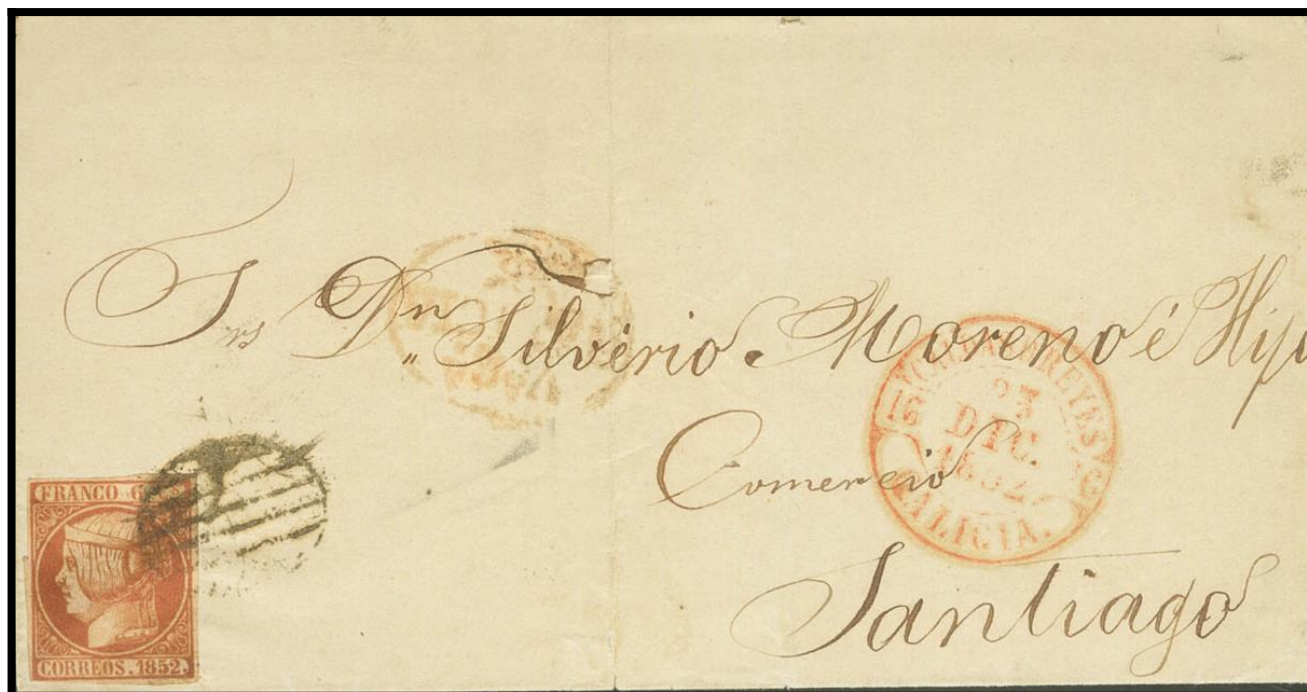 Sres Dn Silvério Moreno é Hijo
Comercio
Santiago
23
DIC.
1852
GALICIA.
FRANCO 6
CORREOS. 1852.